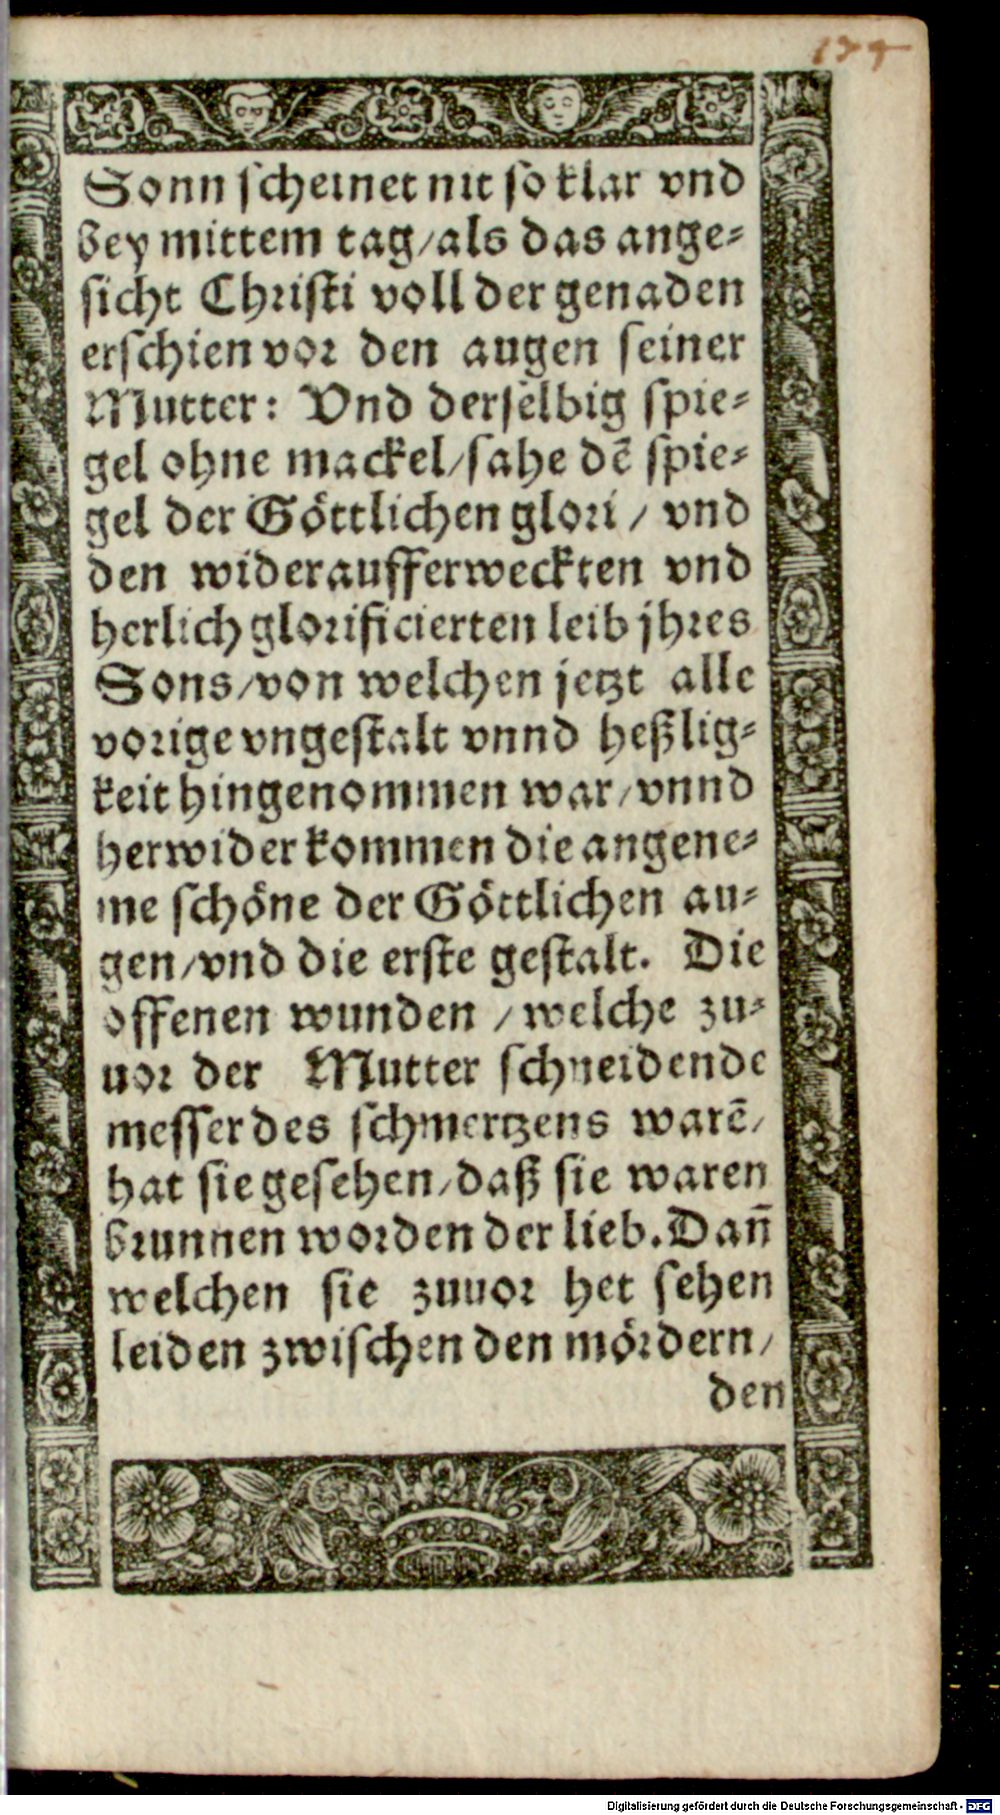 Sonn scheinet nit so klar vnd
bey mittem tag/als das ange⸗
sicht Christi voll der genaden
erschien vor den augen seiner
Mutter: Vnd derselbig spie⸗
gel ohne mackel/sahe dē spie⸗
gel der Göttlichen glori / vnd
den wideraufferweckten vnd
herlich glorificierten leib jhres
Sons/von welchen jetzt alle
vorige vngestalt vnnd heßlig⸗
keit hingenommen war/vnnd
herwider kommen die angene⸗
me schöne der Göttlichen au⸗
gen/vnd die erste gestalt. Die
offenen wunden / welche zu⸗
uor der Mutter schneidende
messer des schmertzens warē/
hat sie gesehen/daß sie waren
brunnen worden der lieb. Dan̄
welchen sie zuuor het sehen
leiden zwischen den mördern/
den
Digitalisierung gefördert durch die Deutsche Forschungsgemeinschaft - DFG